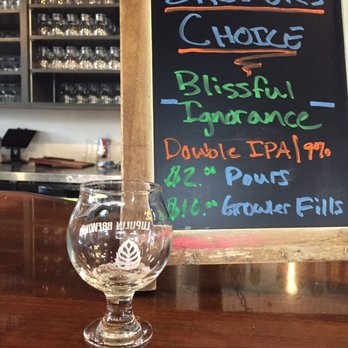 CHOICE
Blissful
Ignorance
Double IPA | 9%
$2.00 Pours
$16.00 Growler Fills
LUPULIN BREWING